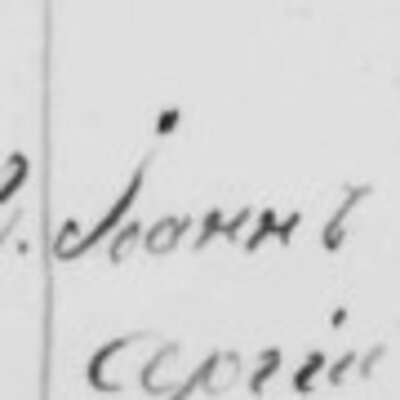 Іоаннъ
Сергіи